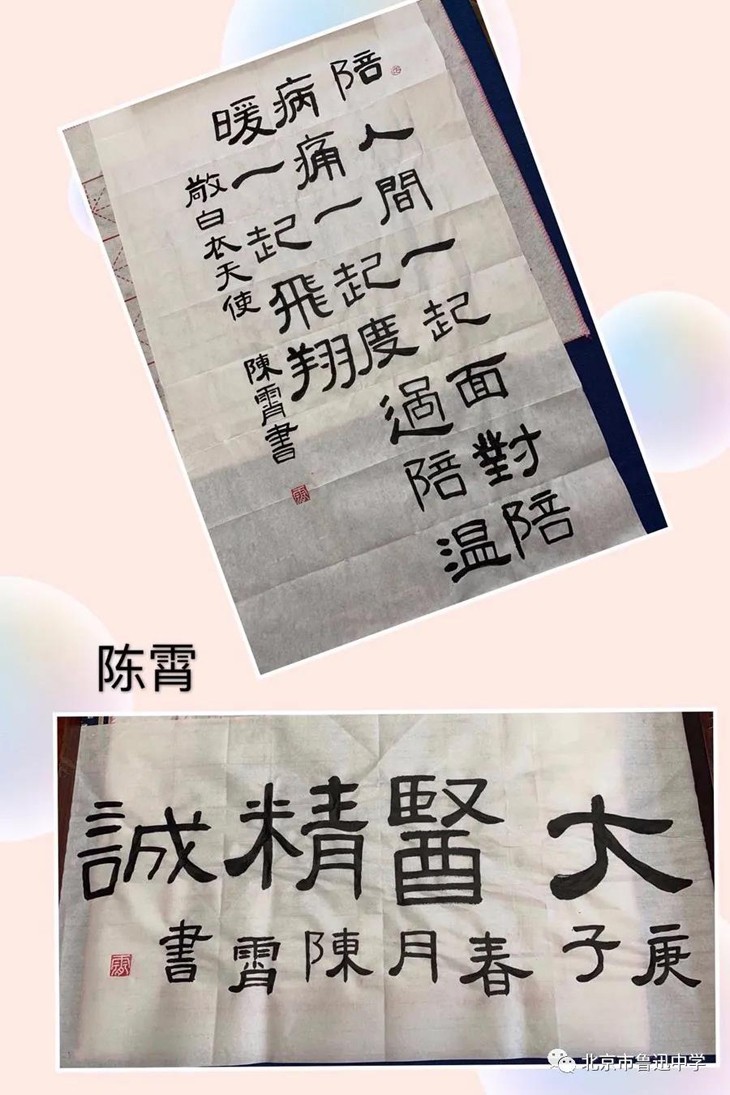 陪人間一起面對陪
病痛一起度過陪温
暖一起飛翔
敬白衣天使 陳霄書
陈霄
大醫精誠
庚子春月陳霄書
北京市鲁迅中学